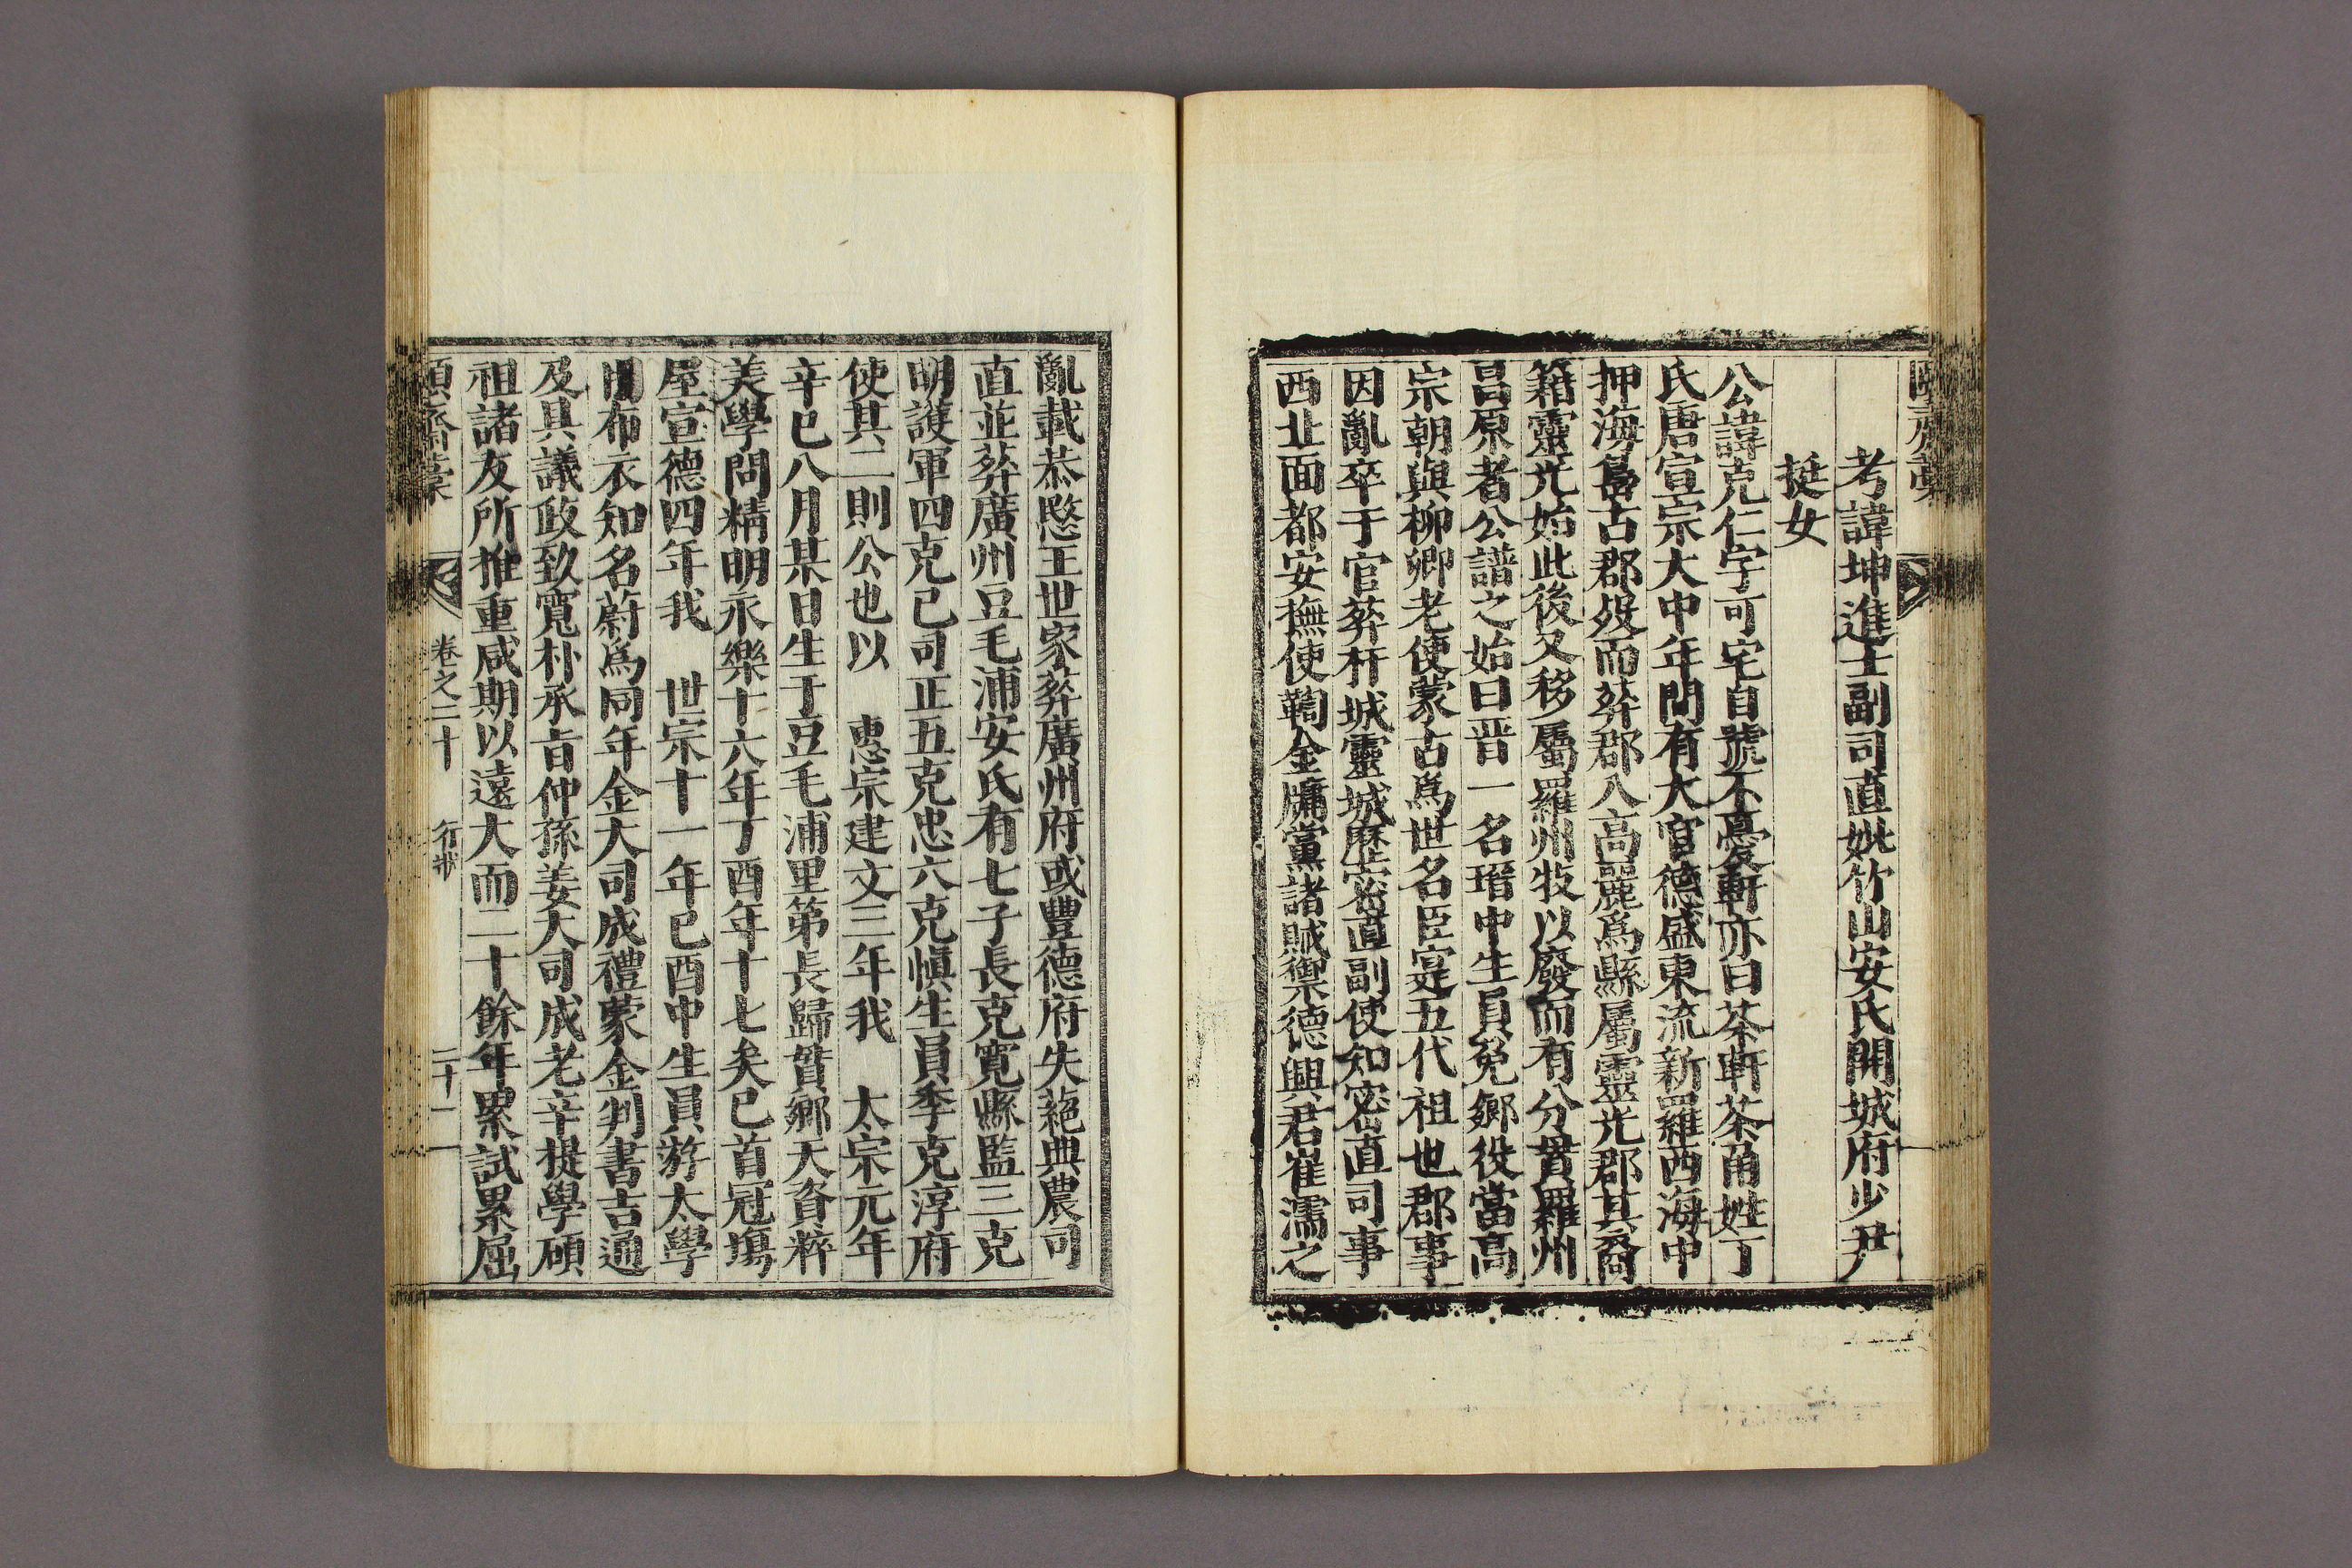 考諱坤進士副司直妣竹山安氏開城府少尹
挺女
公諱克仁字可宅自號不憂軒亦曰茶軒茶角姓丁
氏唐宣宗大中年間有大官德盛東流新羅西海中
押海島古郡歿而葬郡八高麗爲縣屬靈光郡其裔
籍靈光始此後又移屬羅州牧以廢而有分貫羅州
昌原者公譜之始曰晋一名瑨中生員免鄕役當高
宗朝與柳卿老使蒙古爲世名臣寔五代祖也郡事
因亂卒于官葬杆城靈城歷密直副使知密直司事
西北面都安撫使鞫金鏞黨諸賊禦德興君崔濡之
亂載恭愍王世家葬廣州府或豐德府失蕝典農司
直並葬廣州豆毛浦安氏有七子長克寬縣監三克
明護軍四克己司正五克忠六克愼生員季克淳府
使其二則公也以 惠宗建文三年我 太宗元年
辛巳八月某日生于豆毛浦里第長歸貫鄕天資粹
美學問精明永樂十六年丁酉年十七矣已首冠塲
屋宣德四年我 世宗十一年己酉中生員游太學
布衣知名蔚爲同年金大司成禮蒙金判書吉通
及具議政致寬朴承旨仲孫姜大司成老辛提學碩
祖諸友所推重咸期以遠大而二十餘年累試累屈
頤齋藁 卷之二十 行狀 二十二